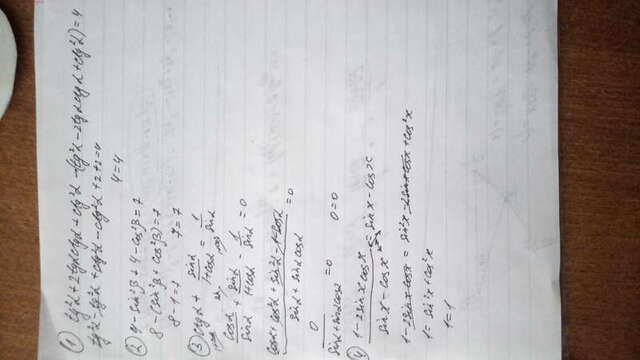 ① tg²α + 2tgαctgα + ctg²α - (tg²α - 2tgαctgα + ctg²α) = 4
tg²α - tg²α + ctg²α - ctg²α + 2 + 2 = 4
4 = 4
② 4 - sin²β + 4 - cos²β = 7
8 - (sin²β + cos²β) = 7
8 - 1 = 7
7 = 7
③ ctgα + sinα/(1+cosα) = 1/sinα
cosα/sinα + sinα/(1+cosα) - 1/sinα = 0
(cosα + cos²α + sin²α - 1 - cosα)/(sinα + sinαcosα) = 0
0/(sinα + sinαcosα) = 0
0 = 0
④ (1 - 2sinxcosx)/(sinx - cosx) = sinx - cosx
1 - 2sinxcosx = sin²x - 2sinxcosx + cos²x
1 = sin²x + cos²x
1 = 1